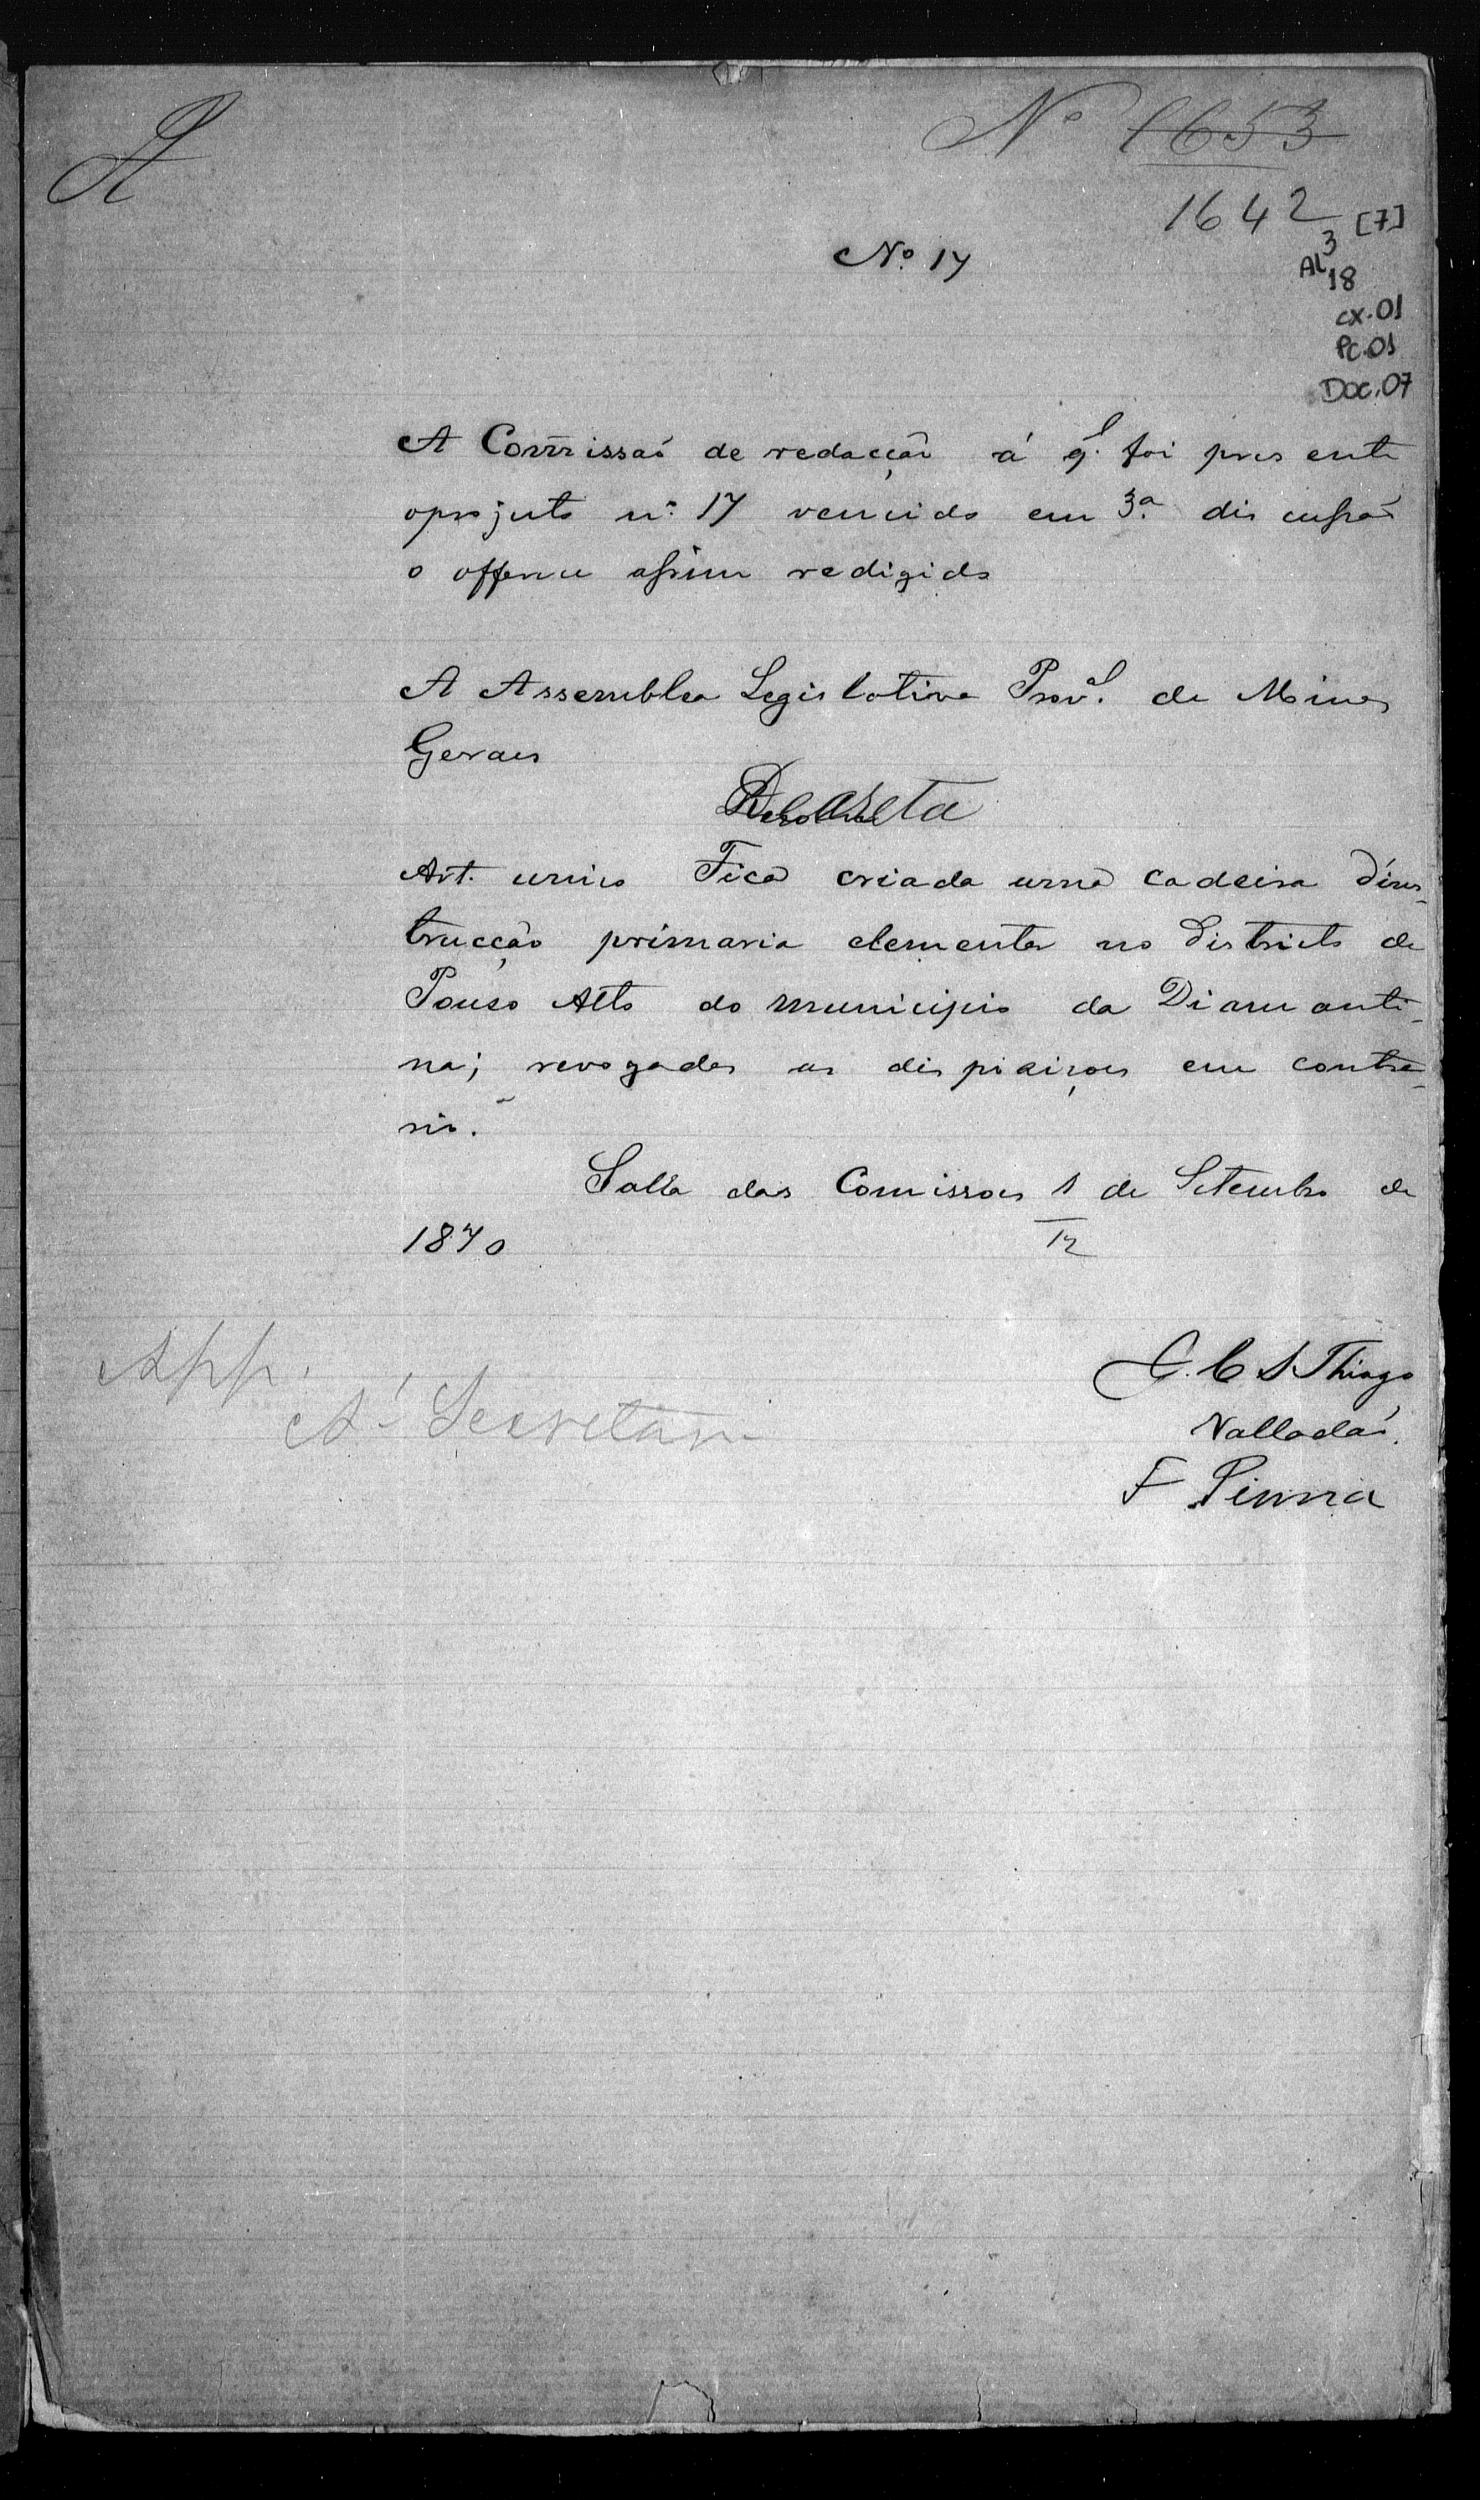 A
Nº 1653
1642 [7]
Nº 17
AL 3
18
cx.01
Pc.01
Doc.07
A Com̃issaõ de redacção á q.l foi presente
o projecto nº 17 vencido em 3.ª discussaõ
o offerece assim redigido
A Assemblea Legislativa Prov.al de Minas
Geraes
Decreta
Art. unico Fica criada uma cadeira d'ins-
trucção primaria elementar no districto de
Pouso Alto do municipio da Diamanti-
na; revogadas as dispozições em contra-
rio.
Salla das Comissoes 1 de Setembro de
1870
12
App.
A' Secretaria
J. C. S. Thiago
Valladaõ
F Penna